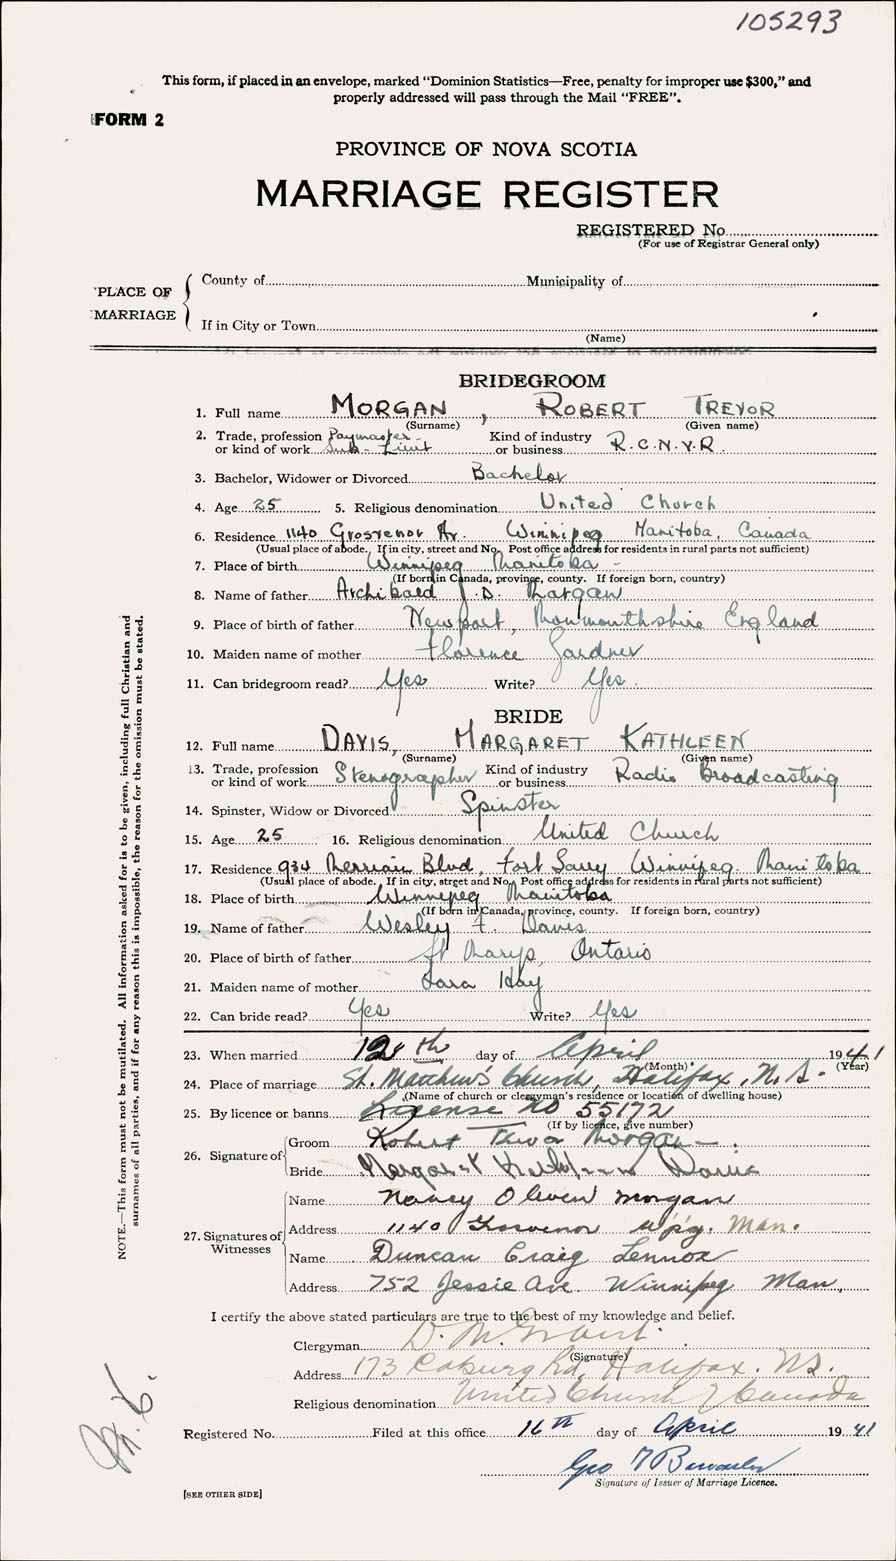 105293
This form, if placed in an envelope, marked “Dominion Statistics—Free, penalty for improper use $300,” and
properly addressed will pass through the Mail “FREE”.
FORM 2
PROVINCE OF NOVA SCOTIA
MARRIAGE REGISTER
REGISTERED No.
(For use of Registrar General only)
PLACE OF MARRIAGE
County of Municipality of
If in City or Town
(Name)
BRIDEGROOM
1. Full name MORGAN, ROBERT TREVOR
(Surname) (Given name)
2. Trade, profession or kind of work Paymaster - Sub-Lieut Kind of industry or business R.C.N.V.R.
3. Bachelor, Widower or Divorced Bachelor
4. Age 25 5. Religious denomination United Church
6. Residence 1140 Grosvenor Av. Winnipeg Manitoba, Canada
(Usual place of abode. If in city, street and No. Post office address for residents in rural parts not sufficient)
7. Place of birth Winnipeg Manitoba -
(If born in Canada, province, county. If foreign born, country)
8. Name of father Archibald J.D. Morgan
9. Place of birth of father Newport, Monmouthshire England
10. Maiden name of mother Florence Gardner
11. Can bridegroom read? Yes Write? Yes.
BRIDE
12. Full name DAVIS, MARGARET KATHLEEN
(Surname) (Given name)
13. Trade, profession or kind of work Stenographer Kind of industry or business Radio Broadcasting
14. Spinster, Widow or Divorced Spinster
15. Age 25 16. Religious denomination United Church
17. Residence 934 Merriam Blvd, Fort Garry Winnipeg Manitoba
(Usual place of abode. If in city, street and No. Post office address for residents in rural parts not sufficient)
18. Place of birth Winnipeg Manitoba
(If born in Canada, province, county. If foreign born, country)
19. Name of father Wesley F. Davis
20. Place of birth of father St Marys, Ontario
21. Maiden name of mother Hay
22. Can bride read? Yes Write? Yes
23. When married 12th day of April 1941
(Month) (Year)
24. Place of marriage St. Matthew's Church, Halifax, N.S.
(Name of church or clergyman's residence or location of dwelling house)
25. By licence or banns License No 55172
(If by licence, give number)
26. Signature of Groom Robert Trevor Morgan
Bride Margaret Kathleen Davis
27. Signatures of Witnesses Name Nancy Olwen Morgan
Address 1140 Grosvenor Wpg. Man.
Name Duncan Craig Lennox
Address 752 Jessie Ave. Winnipeg Man.
I certify the above stated particulars are true to the best of my knowledge and belief.
Clergyman D. M. Grant.
(Signature)
Address 173 Coburg Rd, Halifax. N.S.
Religious denomination United Church of Canada
Registered No. Filed at this office 16th day of April 1941
Geo
Signature of Issuer of Marriage Licence.
[SEE OTHER SIDE]
NOTE.—This form must not be mutilated. All information asked for is to be given, including full Christian and
surnames of all parties, and if for any reason this is impossible, the reason for the omission must be stated.